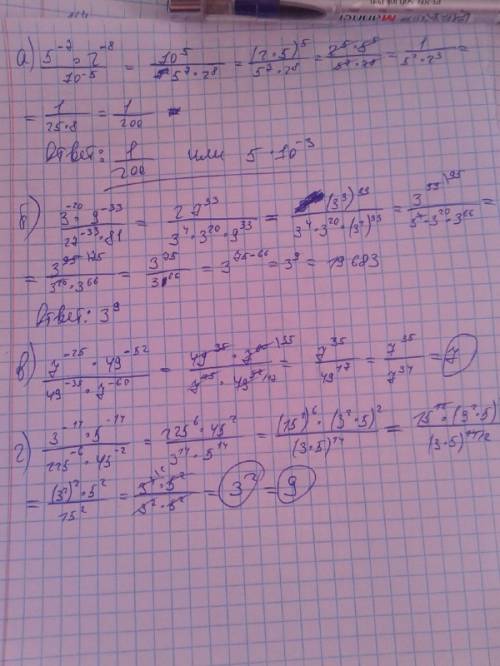 а) 5^-7 · 2^-8 / 10^-5 = 10^5 / 5^7 · 2^8 = (2 · 5)^5 / 5^7 · 2^8 = 2^5 · 5^5 / 5^7 · 2^8 = 1 / 5^2 · 2^3 =
= 1 / 25 · 8 = 1 / 200
Ответ: 1 / 200 или 5 · 10^-3
б) 3^-20 · 9^-33 / 27^-33 · 81 = 27^33 / 3^4 · 3^20 · 9^33 = (3^3)^33 / 3^4 · 3^20 · (3^2)^33 =
= 3^75 / 3^66 = 3^75-66 = 3^9 = 19 683
Ответ: 3^9
в) 7^-25 · 49^-52 / 49^-35 · 7^-60 = 7^35 / 49^17 = 7^35 / 7^34 = 7
г) 3^-14 · 5^-14 / 225^-6 · 45^-2 = 225^6 · 45^2 / 3^14 · 5^14 = (15^2)^6 · (3^2 · 5)^2 / (3 · 5)^14 =
= (3^2)^2 · 5^2 / 15^2 = = 3^2 = 9